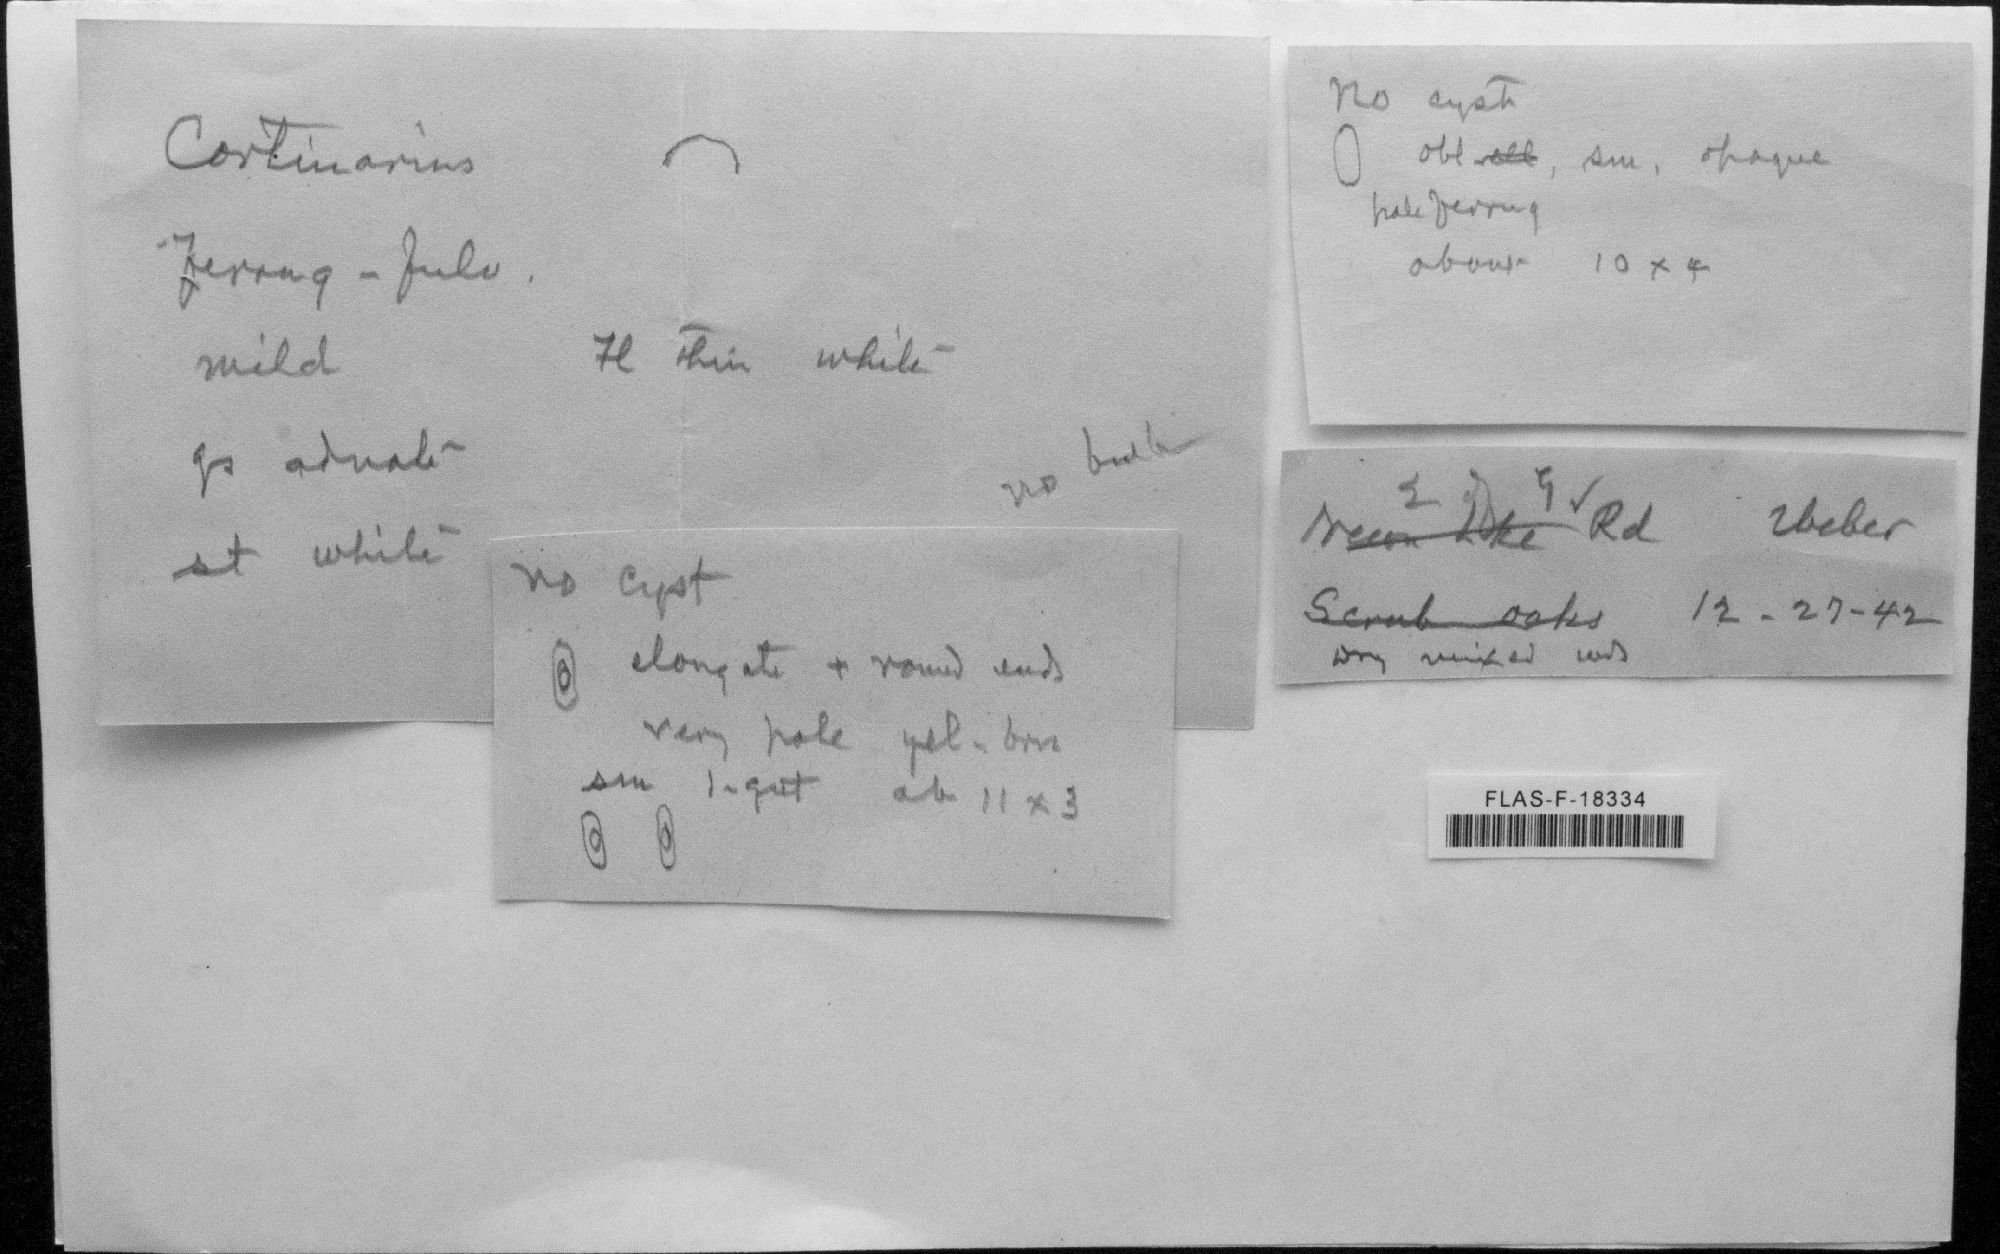 Cortinarius
Ferrug - fulv.
mild Fl thin white
gs adnate
no bulb
st white
no cyst
elongate + round ends
very pale yel-brn
sm 1-gut ab 11 x 3
No cyst
obl-ell, sm, opaque
pale ferrug
about 10 x 4
Rd Weber
Scrub oaks 12-27-42
Dry mixed wds
FLAS-F-18334